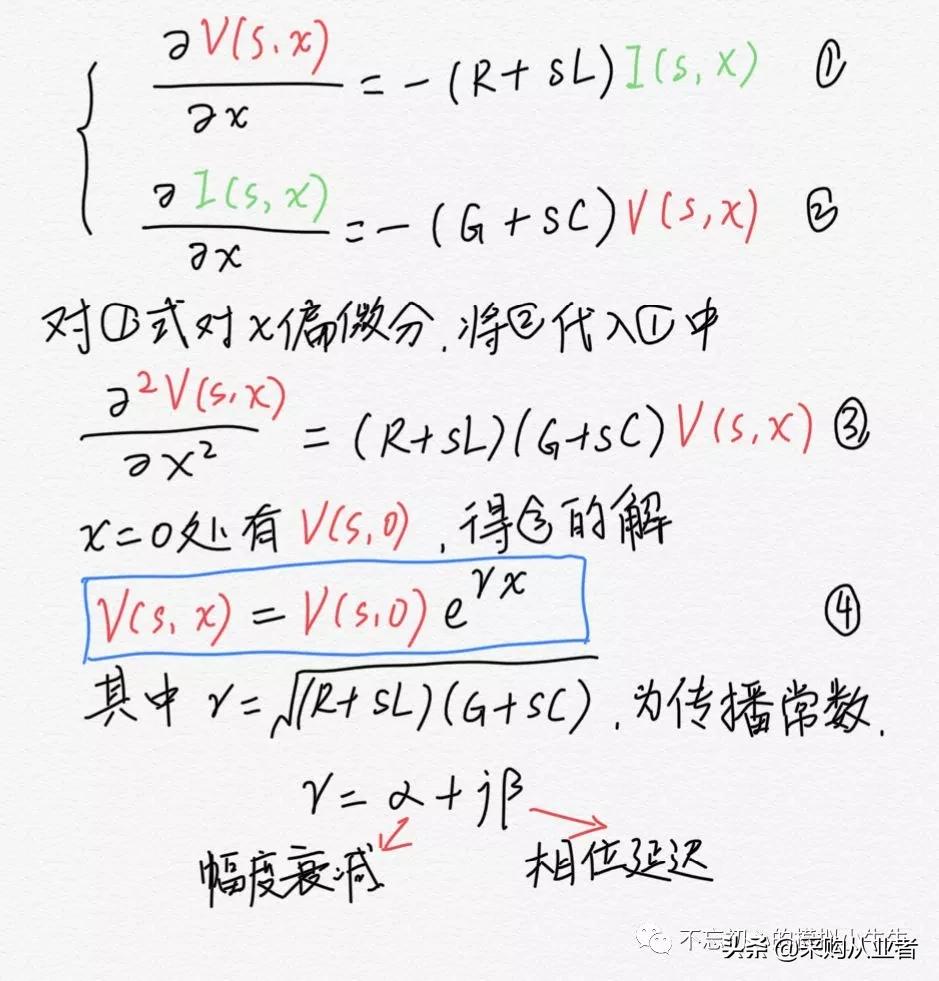 ∂V(s,x)/∂x = -(R+sL)I(s,x) ①
∂I(s,x)/∂x = -(G+sC)V(s,x) ②
对①式对x偏微分,将②代入①中
∂²V(s,x)/∂x² = (R+sL)(G+sC)V(s,x) ③
x=0处有V(s,0),得③的解
V(s,x) = V(s,0)e^γx ④
其中γ=√(R+sL)(G+sC),为传播常数.
γ=α+jβ
幅度衰减 相位延迟
不忘初心的模拟小牛牛
头条@采购从业者